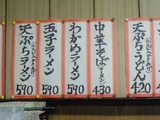 天ぷらうどん
420
中華そばラーメン
430
わかめラーメン
590
玉子ラーメン
590
天ぷらラーメン
590